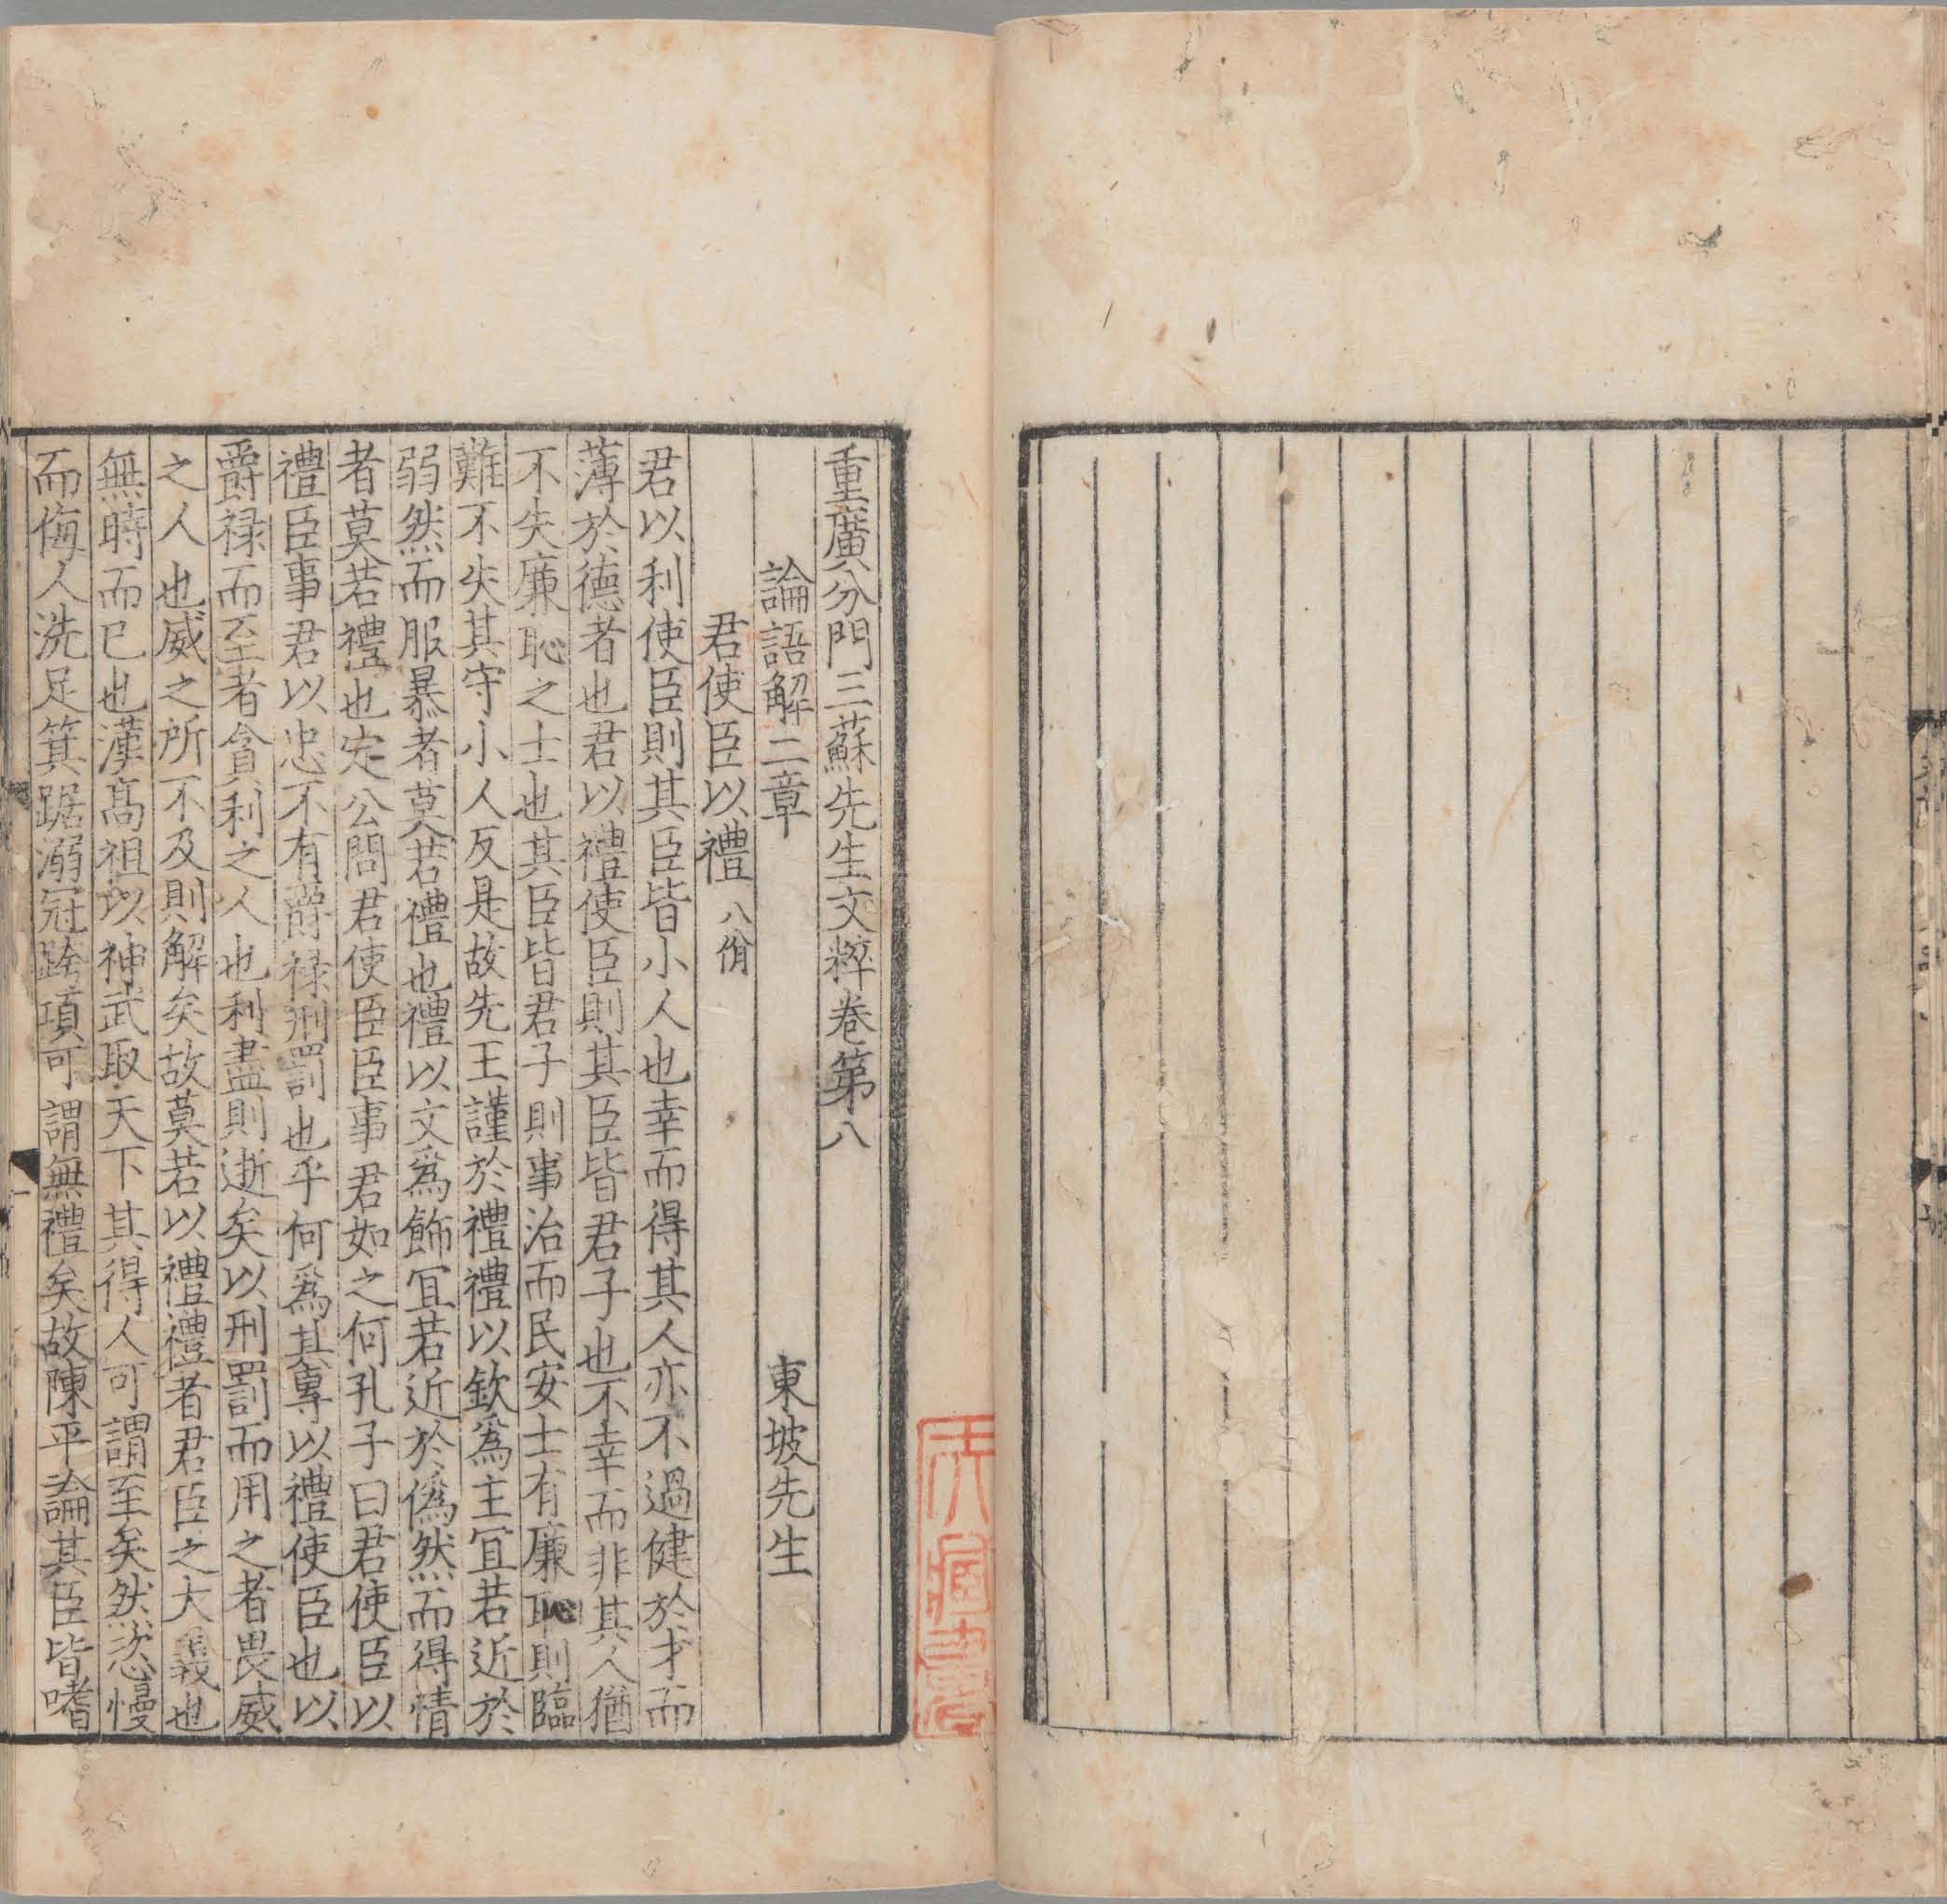 重廣分門三蘇先生文粹卷第八
論語解二章 東坡先生
君使臣以禮 八佾
君以利使臣則其臣皆小人也幸而得其人亦不過健於才而
薄於德者也君以禮使臣則其臣皆君子也不幸而非其人猶
不失廉恥之士也其臣皆君子則事治而民安士有廉恥則臨
難不失其守小人反是故先王謹於禮禮以欽爲主宜若近於
弱然而服暴者莫若禮也禮以文爲飾宜若近於僞然而得情
者莫若禮也定公問君使臣臣事君如之何孔子曰君使臣以
禮臣事君以忠不有爵祿刑罰也乎何爲其專以禮使臣也以
爵祿而至者貪利之人也利盡則逝矣以刑罰而用之者畏威
之人也威之所不及則解矣故莫若以禮禮者君臣之大義也
無時而已也漢高祖以神武取天下其得人可謂至矣然恣慢
而侮人洗足箕踞溺冠跨項可謂無禮矣故陳平論其臣皆嗜